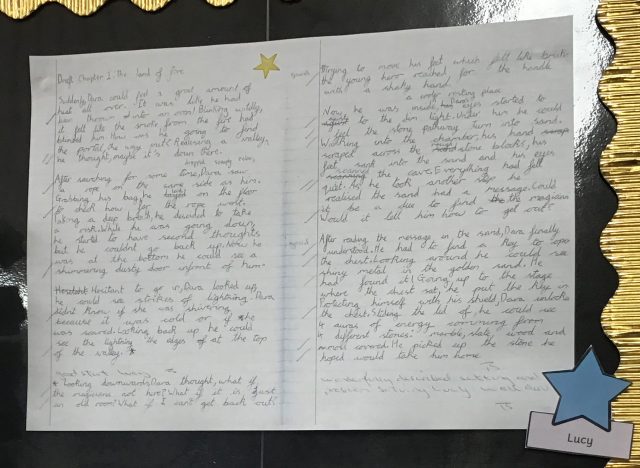 Draft Chapter 1: the land of fire
Suddenly, Dara could feel a great amount of
heat all over. It was like he had
been thrown into an oven! Blinking wildly,
it felt like the smoke from the fire had
blinded him. How was he going to find
the portal, the way out? Realising a valley,
he thought, maybe it's down there.
After searching for some time, Dara saw
a rope on the same side as him.
Grabbing his bag, he on the floor
to check how far the rope went.
Taking a deep breath, he decided to take
a risk. While he was going down,
he started to have second thoughts
but he couldn't go back up. Now he
was at the bottom he could see a
shimmering dusty door infront of him.
Hesitant to go in, Dara looked up,
he could see strikes of lightning. Dara
didn't know if she was shivering
because it was cold or if he
was scared. Looking back up he could
see the lightning the edges of at the top
of the valley. *
* Looking downwards Dara thought, what if
the magicians not here? What if it is just
an old room? What if I can't get back out?
Trying to move his feet which felt like bricks
the young hero reached for the handle
with a shaky hand.
a under resting place
Now he was inside, his eyes started to
to the dim light. Under him he could
feel the stone pathway turn into sand.
Walking into the chamber, his hand
scraped across the stone blocks, his
feet sank into the sand and his eyes
scanned the cave. Everything had fell
quiet. As he took another step he
realised the sand had a message. Could
it be a clue to find the magician
Would it tell him how to get out?
After reading the message in the sand, Dara finally
understood. He had to find a key to open
the chest. Looking around he could see
shiny metal in the golden sand. He
had found it! Going up to the stage
where the chest sat, he put the key in.
Protecting himself with his shield, Dara unlocks
the chest. Sliding the lid of he could see
4 auras of energy comming from
4 different stones: marble, slate, wood and
moss covered. He picked up the stone he
hoped would take him home.
TS
wonderfully described setting and
TS
Lucy